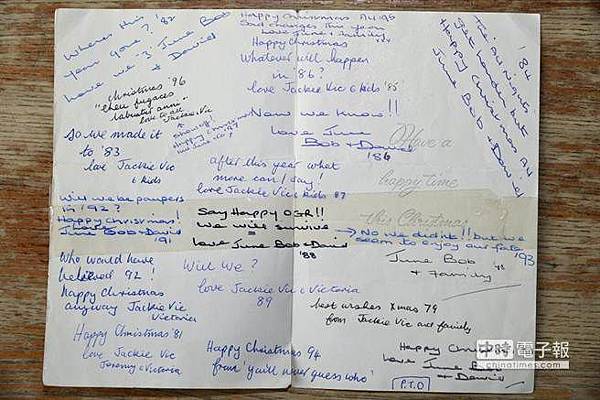 Where has '82
year gone?
love
June Bob
& David
Christmas '96
"eheu fugaces
labuntur anni"
love to all
Jackie Vic
so we made it
to '83
love Jackie Vic
& kids
Will we be paupers
in '92?
Happy Christmas!
June Bob & David
'91
Who would have
believed 92!
happy Christmas
anyway Jackie Vic
Victoria
Happy Christmas '81
love Jackie Vic
Jeremy & Victoria
Happy Christmas All
love June & family
Happy Christmas
Whatever will happen
in '86?
love Jackie Vic & kids '85
Now we know!!
love June
Bob & David
'86
after this year what
more can I say!
love Jackie Vic & kids 87
Say Happy OSR!!
we will survive
love June Bob & David
'88
Will We?
love Jackie Vic & Victoria
89
Happy Christmas 94
from 'you'll never guess who'
'84
Happy Christmas All
June Bob & David
Have a
happy time
this Christmas
→ No we didn't!! but we
seem to enjoy our fate
'93
June Bob
& Family
best wishes Xmas 79
from Jackie Vic and family
Happy
love June
& David
P.T.O
中時電子報
chinatimes.com